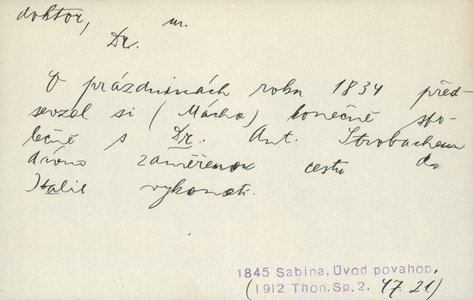 doktor, m.
Dr.
O prázdninách roku 1834 před-
sevzal si (Mácha) konečně spo-
lečně s Dr. Ant. Strobachem
dávno zaměřenou cestu do
Italie vykonati.
1845 Sabina, Úvod povahop.
(1912 Thon. Sp. 2. 47. 21)